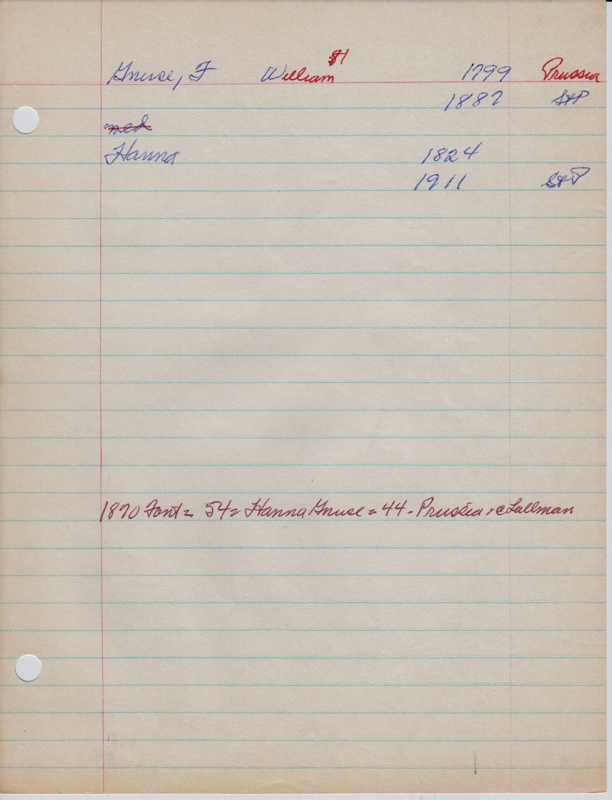 Gnuse, F William #1 1799 Prussia
1882 StP
med
Hanna 1824
1911 StP
1870 Font = 54 = Hanna Gnuse = 44 - Prussia - c Lallman